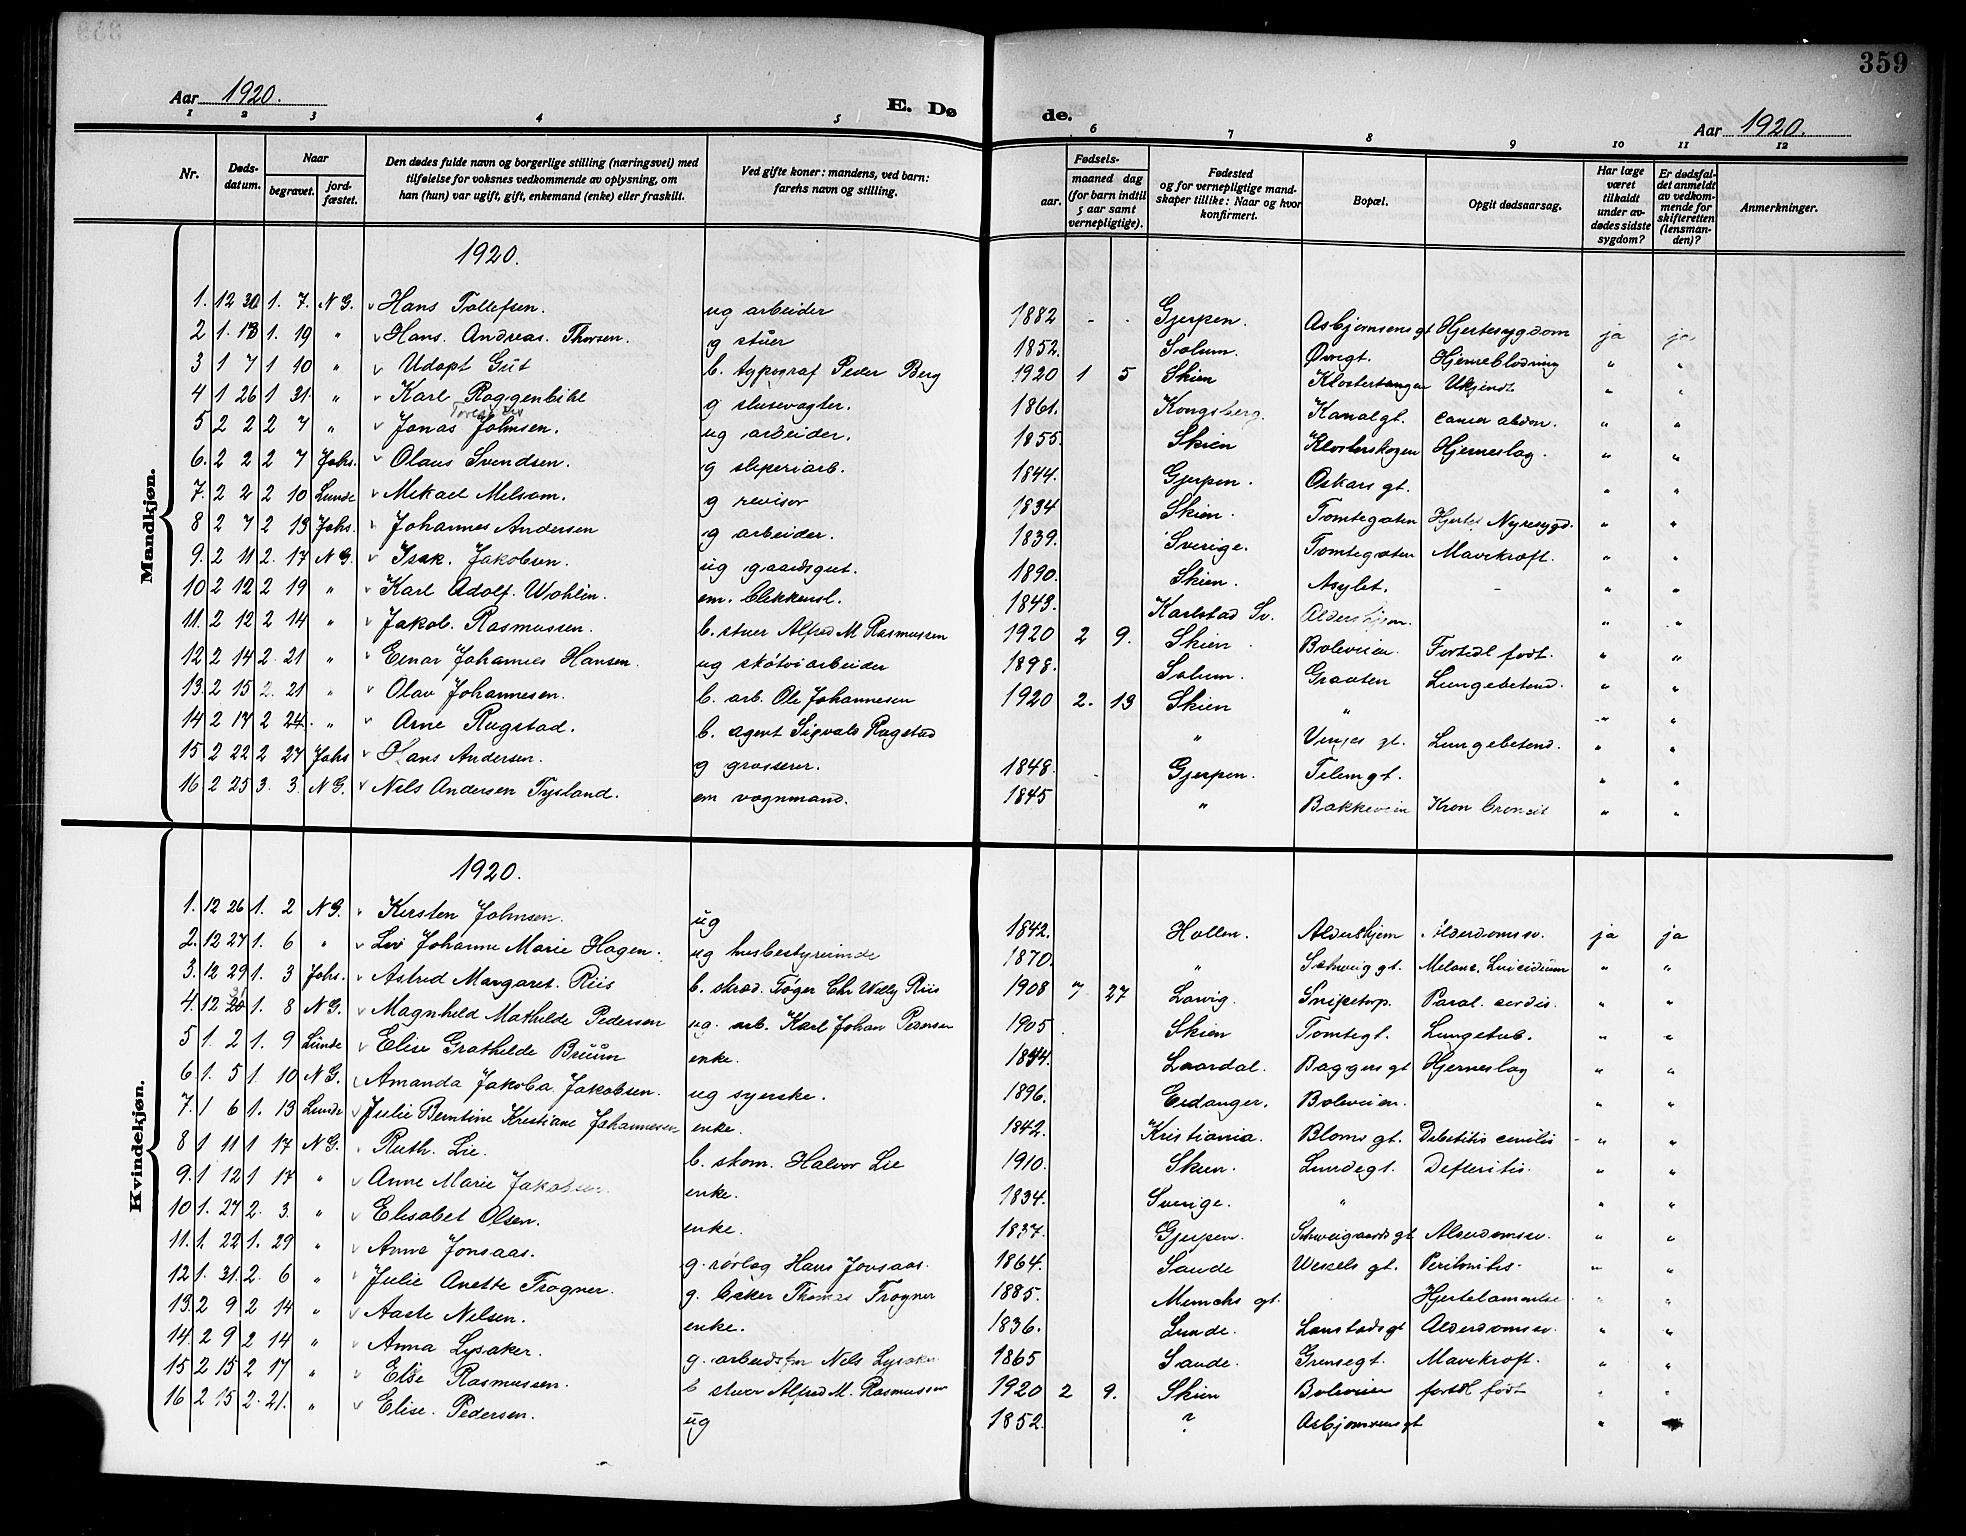 359
Aar 1920.
E. Døde.
Aar 1920.
1 2 3 4 5 6 7 8 9 10 11 12
Nr.
Døds-datum.
Naar
begravet.
jord-fæstet.
Den dødes fulde navn og borgerlige stilling (næringsvei) med
tilføielse for voksnes vedkommende av oplysning, om
han (hun) var ugift, gift, enkemand (enke) eller fraskilt.
Ved gifte koner: mandens, ved barn:
farens navn og stilling.
Fødsels-
aar.
maaned dag
(for barn indtil
5 aar samt
vernepligtige).
Fødested
og for vernepligtige mand-
skaper tillike: Naar og hvor
konfirmert.
Bopæl.
Opgit dødsaarsag.
Har læge
været
tilkaldt
under av-
dødes sidste
sygdom?
Er dødsfal-
det anmeldt
av vedkom-
mende for
skifteretten
(lensman-
den)?
Anmerkninger.
Mandkjøn.
1920.
1. 12 30 1. 7. N G. Hans Tollefsen. ug arbeider 1882 - . Gjerpen. Asbjørnsens gt Hjertesygdom ja ja
2 1. 13 1. 19 " Hans. Andreas. Thorsen. g stuer 1852. Solum. Øvregt. Hjerneblødning " "
3 1 7 1 10 " Udøpt Gut b. typograf Peder Berg 1920 1 5 Skien Klostertangen Ukjendt " "
4 1 26 1 31. " Karl Roggenbihl g slusevogter. 1861. Kongsberg. Kanalgt. cancer abdom. " "
5 2 2 2 7 " Jonas Johnsen. ug arbeider. 1855. Skien Klosterskogen Hjerneslag. " "
6. 2 2 2 7 Johs. Olaus Svendsen. g sliperiarb. 1844. Gjerpen. Oskars gt. " "
7. 2 2 2 10 Lunde Mikael Melsom. g revisor 1834 Skien. Tomtegaten Hjerte Nyresygd. " "
8 2 7 2 13 Johs. Johannes Andersen g arbeider. 1839. Sverige. Tomtegaten Mavekræft. " "
9. 2 11 2. 17 N G. Isak. Jakobsen. ug gaardsgut. 1890. Skien. Asylet. - " "
10 2 12 2 19 " Karl Adolf. Wohlin. em. blikkensl. 1843. Karlstad Sv. Aldershjem. " "
11. 2 12 2 14 " Jakob. Rasmussen. b. stuer Alfred M. Rasmussen 1920 2 9. Skien. Boleveien. Fortidl født. " "
12 2 14 2. 21 " Einar Johannes Hansen. ug skotøiarbeider 1898. Solum. Graaten Lungebetend. " "
13. 2 15 2. 21 " Olav Johannesen. b. arb. Ole Johannesen 1920 2. 13 Skien " " "
14 2 17 2 24. " Arne Rugstad. b. agent Sigvald Rugstad " gt. Lungebetend. " "
15 2 22 2 27 Johs Hans Andersen. g grosserer. 1848. - Gjerpen. Telemgt. " "
16 2 25 3. 3. N G. Nils Andersen Tysland. em vognmand. 1845 " Bakkeveien Kron bronsit " "
Kvindekjøn.
1920.
1. 12 26 1. 2 N G. Kirsten Johnsen. ug 1842. Hollen. Aldershjem Alderdomssv. ja ja
2. 12 27 1. 6 " Lovi Johanne Marie Hagen. ug husbestyrerinde 1870. " Schweig gt. Melanc. Suicidium " "
3. 12 29 1. 3 Johs. Astrid Margaret. Riis b. skræd. Tøger Chr Willy Riis 1908 7 27 Larvig. Snipetorp. Paral. cordis. " "
4. 12 1. 8 N G. Magnhild Mathilde Pedersen ug. arb. Karl Johan Pedersen 1905 . Skien Tomtegt. Lungetub. " "
5 1. 2 1. 9 Lunde Elise Grathilde Bruun enke. 1844. Laardal. Baggers gt Hjerneslag " "
6 1. 5 1. 10 N G. Amanda Jakoba Jakobsen. ug syerske. 1896. Eidanger. Boleveien. " "
7. 1 6 1. 13 Lunde Julie Berntine Kristiane Johannesen enke. 1842. Kristiania. Bloms gt. Debetitis cenilis - " "
8 1 11 1 17 N G. Ruth. Lie. b. skom. Halvor Lie 1910. Skien. Lundegt. Defteritis. " "
9. 1 12 1 17 " Anne Marie Jakobsen. enke. 1834. Sverige. " " "
10 1. 27 2. 3. " Elisabet Olsen. enke. 1837. Gjerpen. Schweigaards gt Alderdomssv. " "
11. 1. 22 1. 29 " Anna Jonsaas. g. rørlæg Hans Jonsaas. 1864. Sande Wessels gt. Peritonitis. " "
12 1. 31. 2. 6 " Julie Anette Trogner. g. baker Thomas Trogner 1885. Munchs gt. Hjertelammelse " "
13. 2 9 2 14 " Aaste Nilsen. enke. 1836. Lunde. Lanstads gt Alderdomssv. " "
14. 2 9 2 14 " Anna Lysaker. g. arbeidsfm Nels Lysaker 1865 Sande. Grensegt. Mavekræft. " "
15 2 15 2 17 " Else Rasmussen. b stuer Alfred M. Rasmussen 1920 2 9. Skien Boleveien fortidl født " "
16 2 15 2. 21. " Elise. Pedersen. ug 1852. ? Asbjørnsens gt "